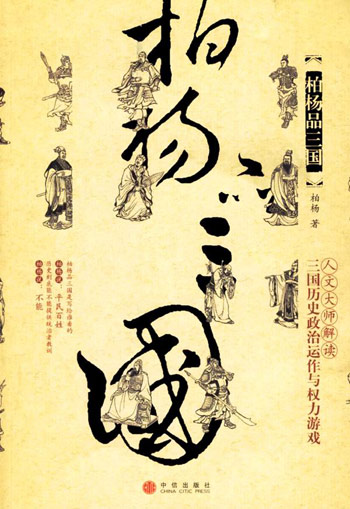 柏杨品三國
【柏杨品三国】
柏杨 著
人文大师解读
三国历史政治运作与权力游戏
柏杨品三国是写给谁看的
柏杨说：平民百姓
历史到底能不能提供统治者教训
柏杨说：不能
中信出版社
CHINA CITIC PRESS